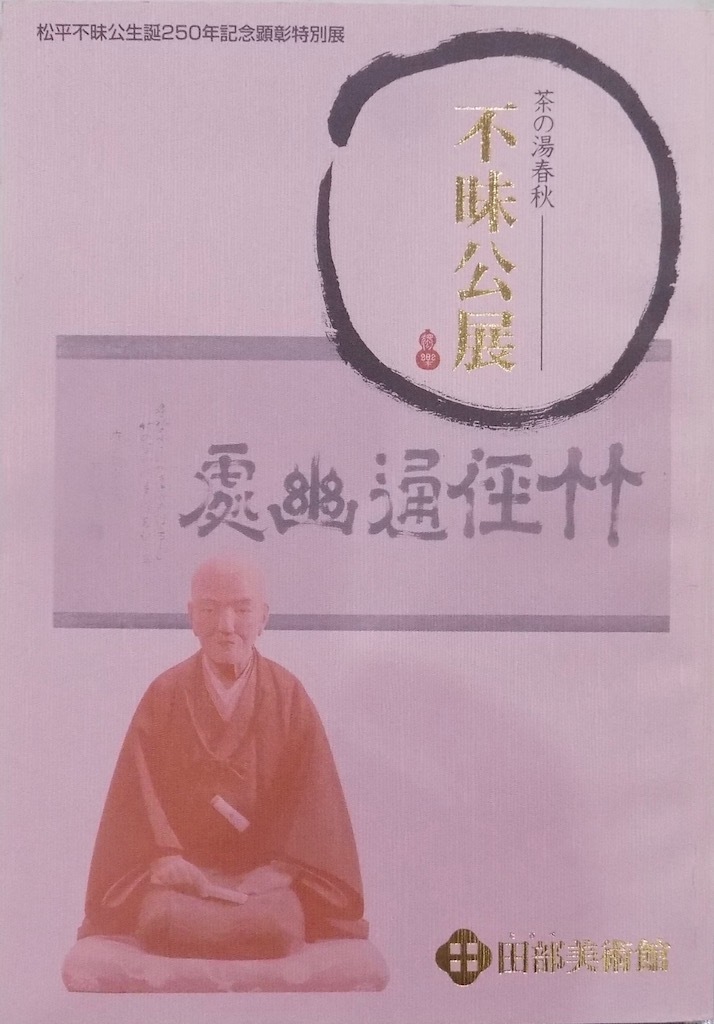 松平不昧公生誕250年記念顕彰特別展
茶の湯春秋
不昧公展
竹徑通幽處
たなべ
田部美術館